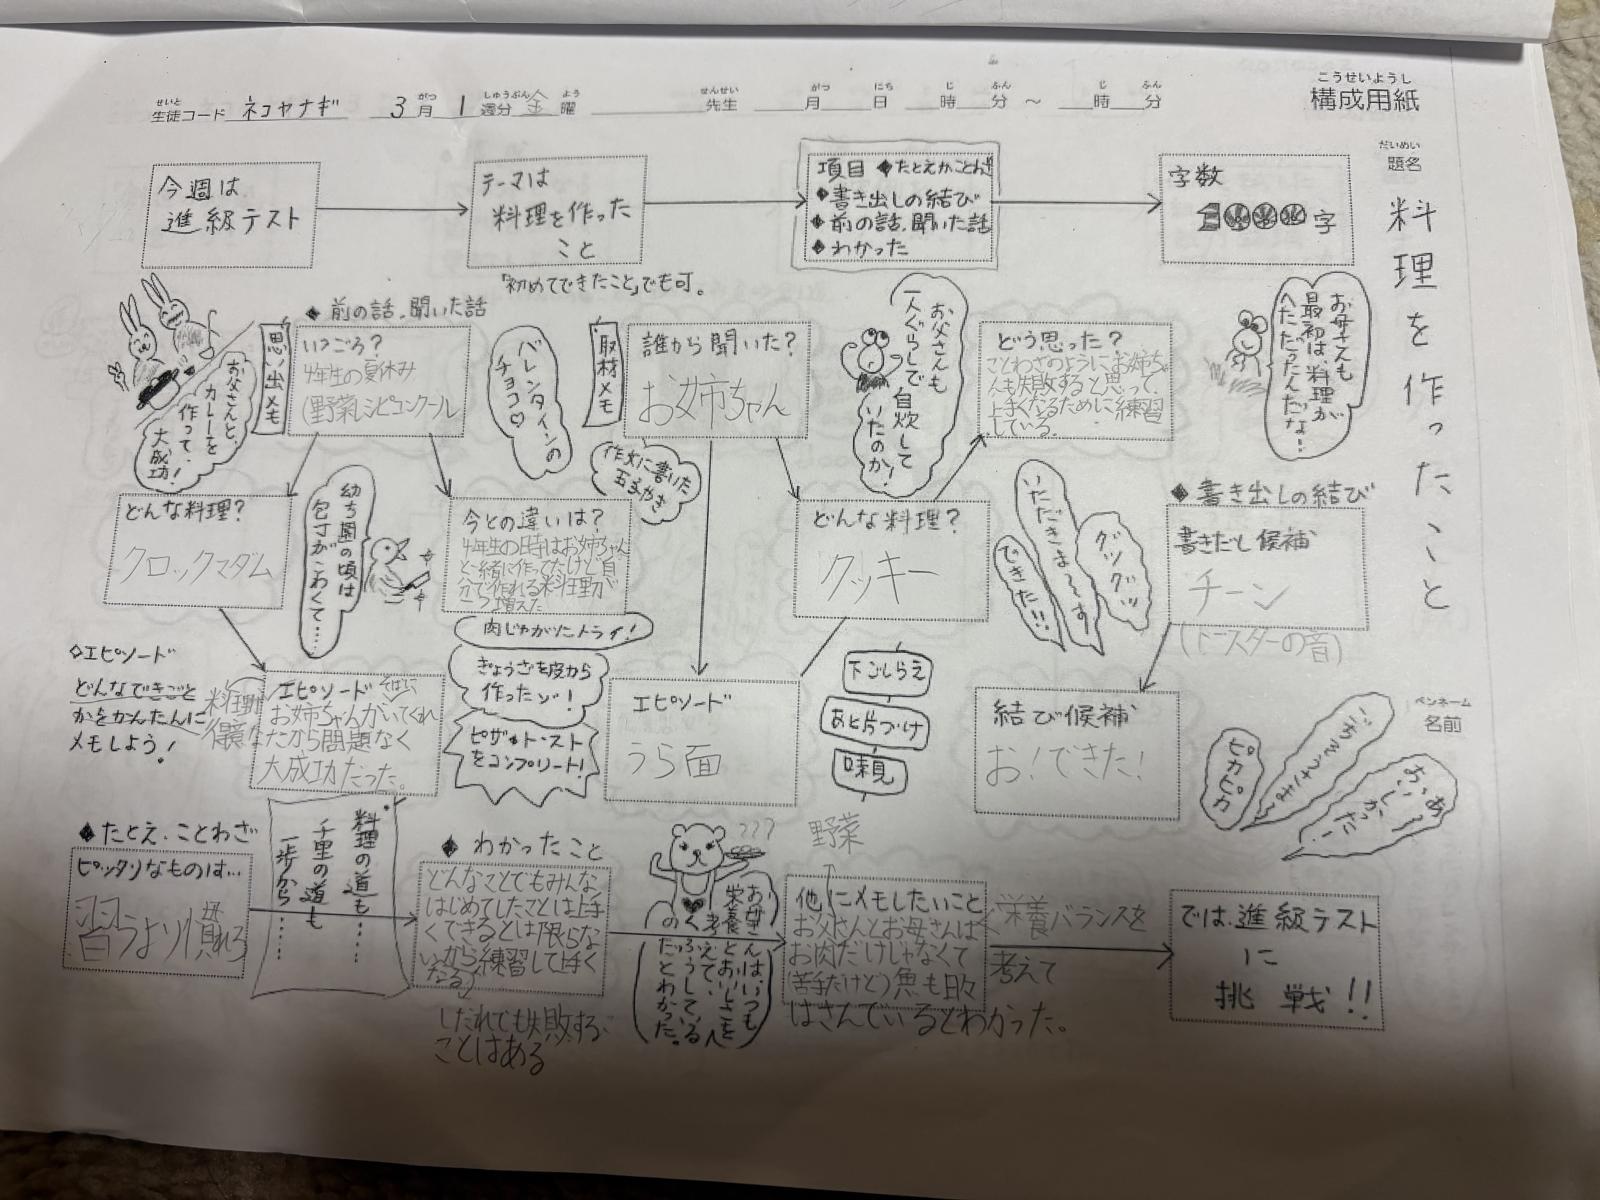 こうせいようし
構成用紙
せいと
生徒コード ネコヤナギ 3月 1週分 金曜
がつ しゅうぶん よう
せんせい がつ にち じ ふん じ ふん
先生 月 日 時 分 ～ 時 分
だいめい
題名
料理を作ったこと
ペンネーム
名前
今週は
進級テスト
テーマは
料理を作った
こと
「初めてできたこと」でも可。
項目 ◆たとえかことわざ
◆書き出しの結び
◆前の話、聞いた話
◆わかった
字数
字
お父さんと、
カレーを
作って、
大成功!
思い出メモ
◆前の話、聞いた話
いつごろ?
4年生の夏休み
(野菜レシピコンクール
バレンタインの
チョコ♡
取材メモ
誰から聞いた?
お姉ちゃん
お父さんも
一人ぐらしで
自炊して
いたのか!
どう思った?
ことわざのようにお姉ちゃ
んも失敗すると思って、
上手くなるために練習
している。
お母さんも
最初は、料理が
へただったんだな…
どんな料理?
クロックマダム
幼ち園の頃は
包丁がこわくて……
今との違いは?
4年生の時はお姉ちゃん
と一緒に作ってたけど自
分で作れる料理が
増えた
作文に書いた
玉子やき
どんな料理?
クッキー
いただきま〜す
グツグツ
できた!!
◆書き出しの結び
書きだし候補
チーン
(トースターの音)
◇エピソード
どんなできごと
かをかんたんに
メモしよう!
エピソード
料理が得意な
お姉ちゃんがそばにいてくれ
たから問題なく
大成功だった。
肉じゃがにトライ!
ぎょうざを皮から
作ったゾ!
ピザ・トースト
をコンプリート!
エピソード
うら面
下ごしらえ
あと片づけ
味見
結び候補
お!できた!
ピカピカ
ごちそうさま〜
◆たとえ、ことわざ
ピッタリなものは…
習うより慣れろ
料理の道も……
千里の道も
一歩から……
◆わかったこと
どんなことでもみんな、
はじめてしたことは上手
くできるとは限らな
いから練習して上手く
なる。
したれでも失敗する
ことはある
???
お母さんは、いつも
栄養とおいしさを
考えて、
くふうしている
のだとわかった。
野菜
他にメモしたいこと
お父さんとお母さんは
お肉だけじゃなくて
(苦手だけど)魚も日々
はさんでいるとわかった。
栄養バランスを
考えて
では、進級テスト
に
挑戦!!